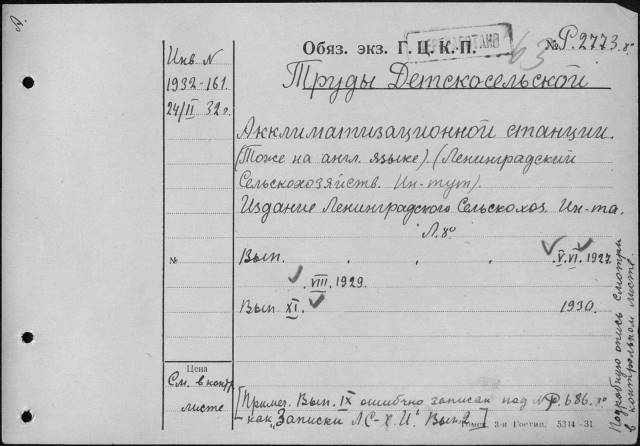 Обяз. экз. Г. Ц. К. П.
№ Р. 2773.8°
63
Инв. N
1932-161.
24/II 32г.
Труды Детскосельской
Акклиматизационной станции.
(Тоже на англ. языке). (Ленинградский
Сельскохозяйств. Ин-тут).
Издание Ленинградского Сельскохоз. Ин-та.
Л. 8°
№ Вып. V. VI. 1927.
VIII. 1929.
Вып. XI. 1930.
Цена
См. в контр.
листе
[Примеч. Вып. IX ошибочно записан под № Р. 686. 8°
как "Записки Л С-Х. И." Вып.
3-я Гостип. 5314-31.
Подробную опись смотри
в контрольном листе.